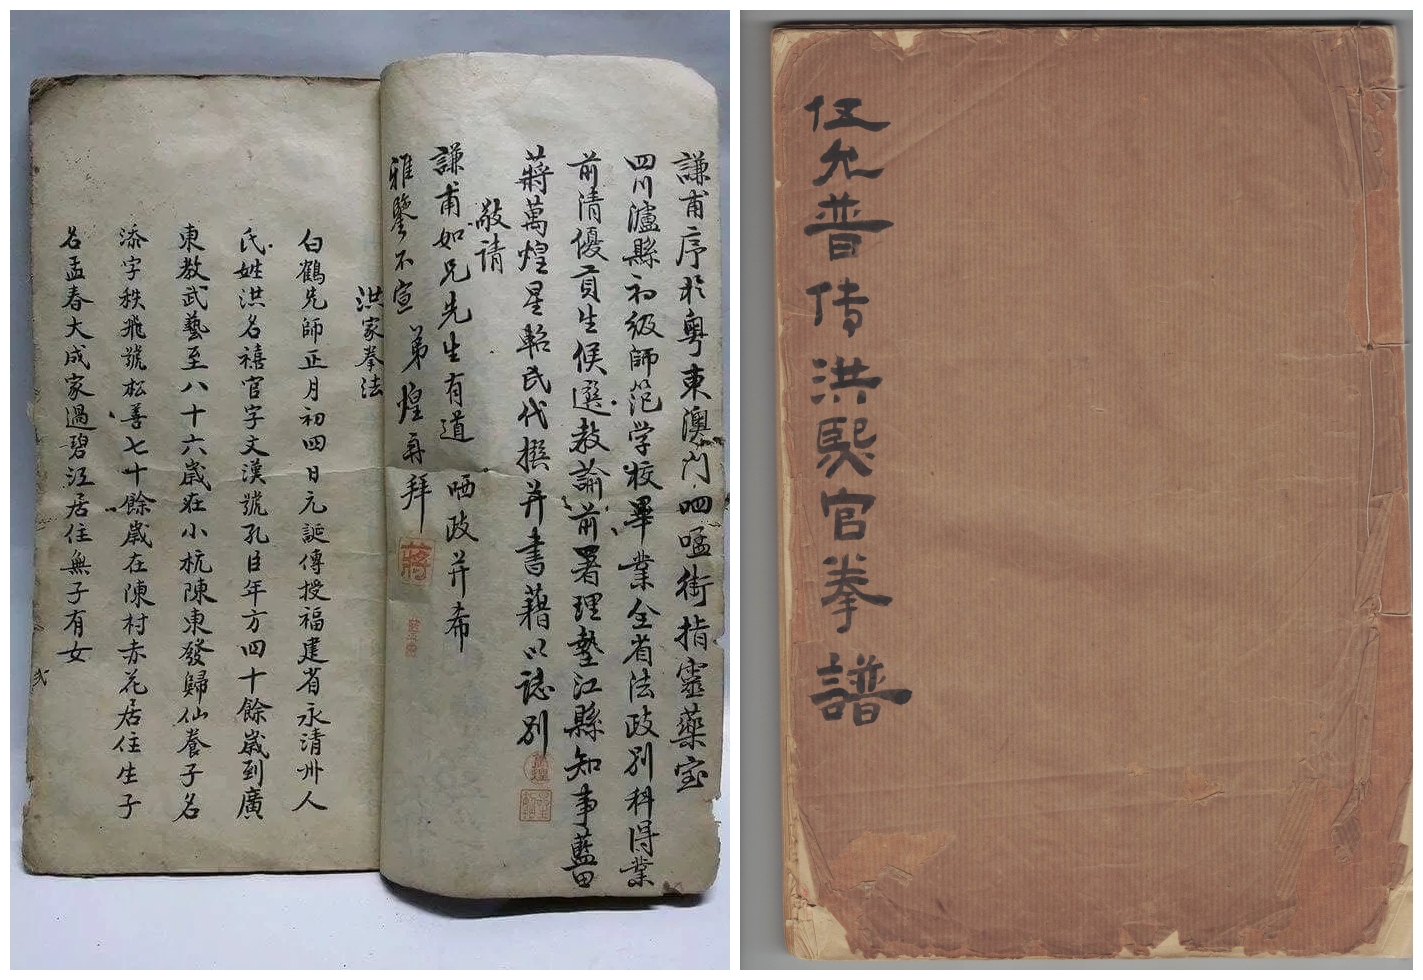 謙甫序於粵東澳門呬嗑街指靈藥室
四川瀘縣初級師范学校畢業全省法政别科得業
前清優貢生候選教諭前署理墊江縣知事藍田
蔣萬煌星軺氏代撰并書藉以誌别
敬請
謙甫如兄先生有道 哂政并希
雅鑒不宣 弟煌再拜
蔣
洪家拳法
白鶴先師正月初四日元誕傳授福建省永清卅人
氏姓洪名禧官字文漢號孔臣年方四十餘歳到廣
東教武藝至八十六歳在小杭陳東發歸仙養子名
添字秩飛號松善七十餘歳在陳村赤花居住生子
名孟春大咸家過碧江居住無子有女
弍
伍允普传洪熙官拳譜